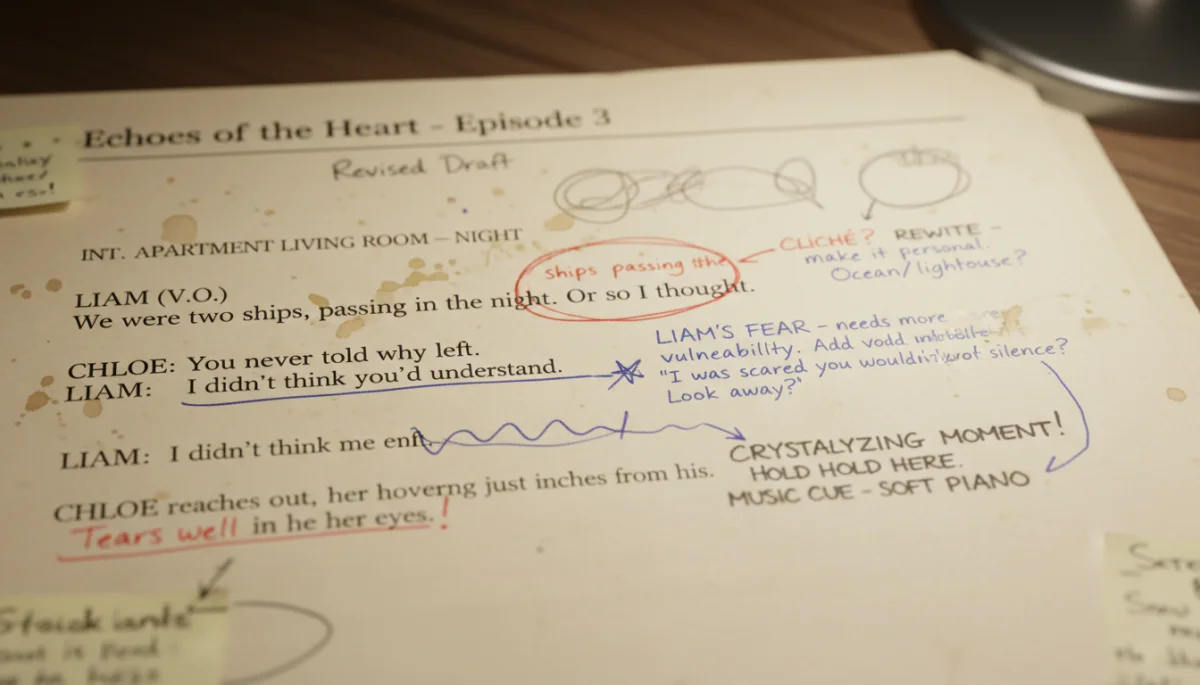 Echoes of the Heart – Episode 3
Revised Draft
INT. APARTMENT LIVING ROOM – NIGHT
ships passing the
CLICHÉ? REWITE –
make it personal.
Ocean/lightouse?
LIAM (V.O.)
We were two ships, passing in the night. Or so I thought.
CHLOE: You never told why left.
LIAM: I didn't think you'd understand.
LIAM'S FEAR – needs more
vulneability. Add vodd
"I was scared you silence?
Look away?"
LIAM: I didn't think me enft.
CRYSTALYZING MOMENT!
HOLD HOLD HERE.
MUSIC CUE – SOFT PIANO
CHLOE reaches out, her hoverng just inches from his.
Tears well in he her eyes.!